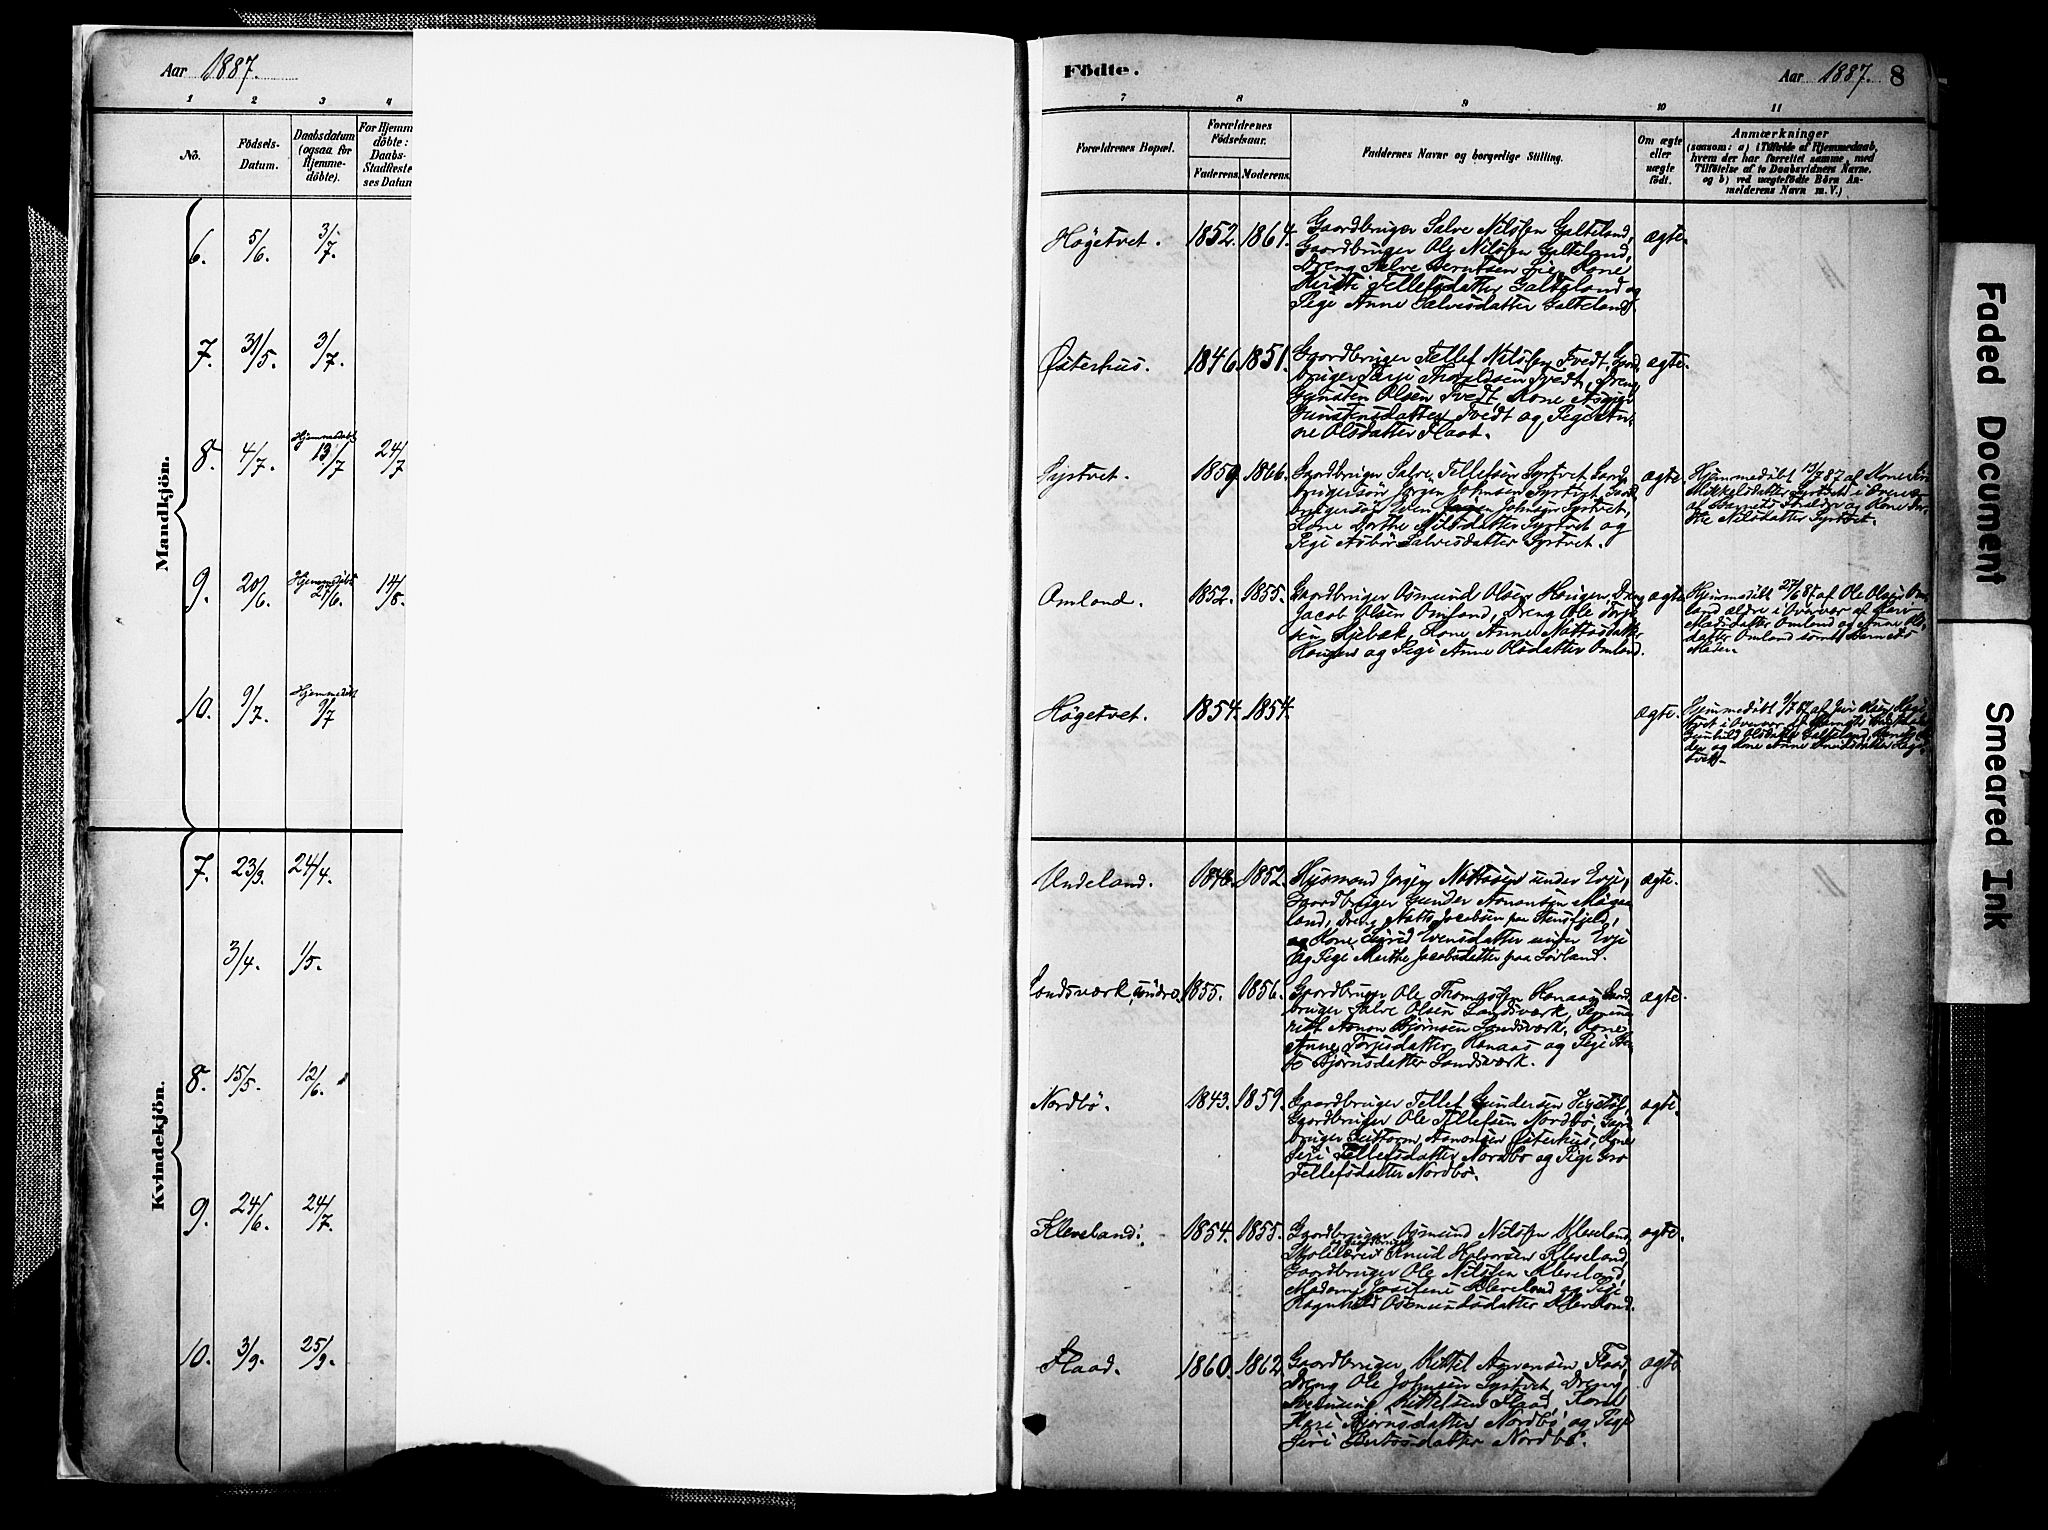 Aar 1887.
1 2 3 4
No.
Födsels-
Datum.
Daabsdatum
(ogsaa for
Hjemme-
döbte).
For Hjemme
döbte:
Daabs-
Stadfæste
ses Datum
Mandkjön.
6. 5/6. 3/7.
7. 31/5. 3/7.
8. 4/7. Hjemmedøbt 13/7 24/7
9. 20/6. Hjemmedøbt 27/6. 14/8.
10. 9/7. Hjemmedøbt 9/7
Kvindekjön.
7. 23/3. 24/4.
3/4. 1/5.
8. 15/5. 12/6.
9. 24/6. 24/7.
10. 3/9. 25/9.
Födte.
Aar 1887. 8
7 8 9 10 11
Forældrenes Bopæl.
Forældrenes
Födselsaar.
Faderens. Moderens.
Faddernes Navne og borgerlige Stilling.
Om ægte
eller
uægte
födt.
Anmærkninger
(saasom: a) i Tilfælde af Hjemmedaab,
hvem der har forrettet samme, med
Tilföielse af to Daabsvidners Navne.
og b) ved uægtefödte Börn An-
melderens Navn m. V.)
Høgetvet. 1852. 1864. ægte.
Gaardbruger Salve Nilssen Galteland,
Gaardbruger Ole Nilssen Galteland,
Dreng Salve Berntsen Lie, Kone
Kirsti Tellefsdatter Galteland og
Pige Anne Salvesdatter Galteland.
Østerhus. 1846. 1851. ægte.
Gaardbruger Tellef Nilssen Tvedt, Gaard-
bruger Tarje Thoraldsen Tvedt, Dreng
Gunsten Olsen Tvedt, Kone
Gunstensdatter Tvedt og Pige An-
ne Olsdatter Flaat.
Syrtvet. 1859. 1866. ægte.
Gaardbruger Salve Tellefsen Syrtvet, Gaard-
brugersøn Jørgen Johnsen Syrtvet, Gaard-
brugersøn Even Johnsen Syrtvet,
Kone Dorthe Nilsdatter Syrtvet og
Pige Asbør Salvesdatter Syrtvet.
Hjemmedøbt 13/7 87 af Kone
Mikkelsdatter Syrtvet i Overvær
af Barnets Forældre og Kone Dor-
the Nilsdatter Syrtvet.
Omland. 1852. 1855. ægte
Gaardbruger Osmund Olsen Haugen, Dreng
Jacob Olsen Omland, Dreng Ole Terje-
sen Kjebæk, Kone Anne Mattosdatter
Haugen og Pige Anne Olsdatter Omland.
Hjemmedøbt 27/6 87 af Ole Olsen Om-
land ældre i Overvær af Kari
Madsdatter Omland og Anne Ols-
datter Omland samt Barnets
Moder.
Høgetvet. 1854. 1854. ægte.
Hjemmedøbt 9/7 87 af
i Overvær af Barnets
Gunhild Olsdatter Galteland,
og Kone Anne Knudsdatter Høge-
tvet.
Undeland. 1848. 1852. ægte.
Husmand Jørgen Mattosen under Evje,
Gaardbruger Gunder Aanonsen
land, Dreng Matts Jacobsen paa Stensfjeld,
og Kone Sigrid Evensdatter under Evje
og Pige Marthe Jacobsdatter paa Sørland.
Landsværk, søndre. 1855. 1856. ægte.
Gaardbruger Ole Thomassen Hanaas, Gaard-
bruger Salve Olsen Landsværk, Semina-
rist Aanon Bjørnsen Landsværk, Kone
Anne Terjesdatter Hanaas og Pige
Bjørnsdatter Landsværk.
Nordbø. 1843. 1859. ægte.
Gaardbruger Tellef Gundersen
Gaardbruger Ole Tellefsen Nordbø, Gaard-
bruger Guttorm Aanonsen Østerhus, Kone
Siri Tellefsdatter Nordbø og Pige Gro
Tellefsdatter Nordbø.
Kleveland. 1854. 1855. ægte.
Gaardbruger Osmund Nilssen Kleveland,
Skolelærer og Gaardbruger Knud Halvorsen Kleveland,
Gaardbruger Ole Nilssen Kleveland,
Madam Josefine Kleveland og Pige
Ragnhild Osmundsdatter Kleveland.
Flaad. 1860. 1862 ægte
Gaardbruger Kittel Aanonsen Flaad,
Dreng Ole Johnsen Syrtvet, Dreng
Kittelsen Flaad, Kone
Kari Bjørnsdatter Nordbø og Pige
Siri Nordbø.
Faded Document
Smeared Ink